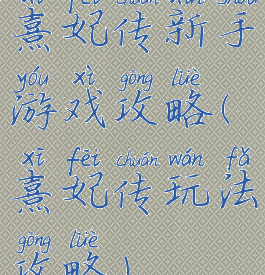 xī fēi chuán xīn shǒu
熹妃传新手
yóu xì gōng lüè
游戏攻略(
xī fēi chuán wán fǎ
熹妃传玩法
gōng lüè
攻略)